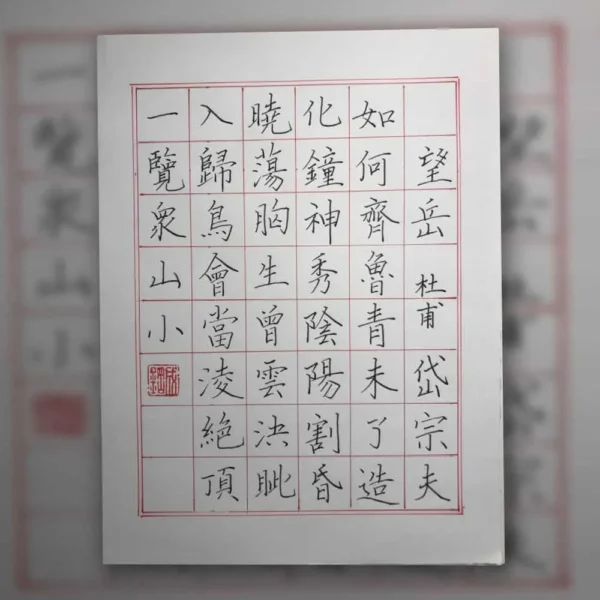 望岳 杜甫 岱宗夫
如何齊魯青未了造
化鐘神秀陰陽割昏
曉蕩胸生曾雲決眦
入歸鳥會當淩絕頂
一覽衆山小